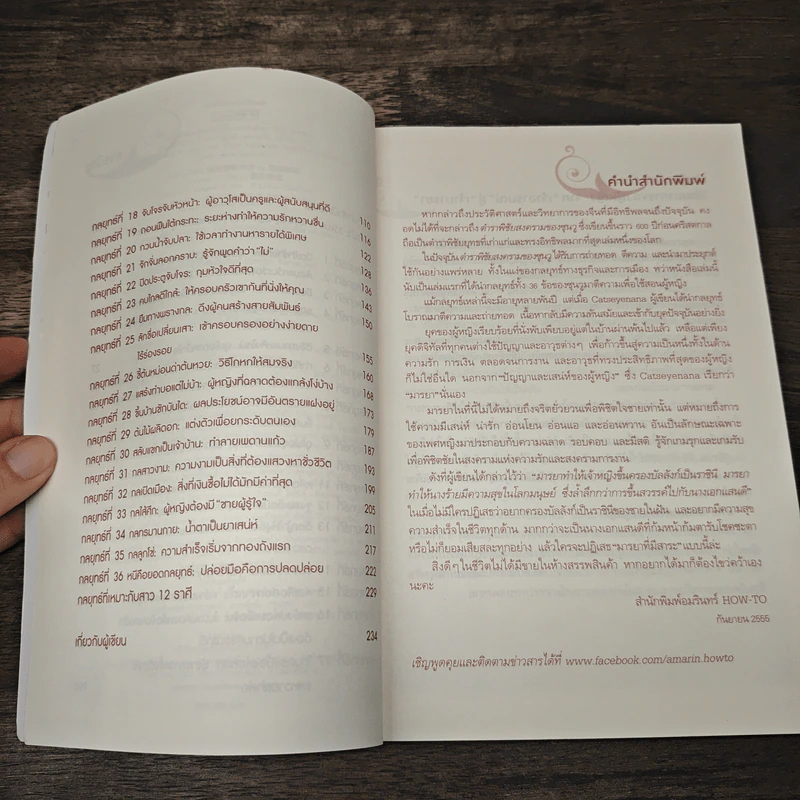 กลยุทธ์ที่ 18 จับโจรจับหัวหน้า: ผู้อาวุโสเป็นครูและผู้สนับสนุนที่ดี 110
กลยุทธ์ที่ 19 ถอนฟืนใต้กระทะ: ระยะห่างทำให้ความรักหวานชื่น 116
กลยุทธ์ที่ 20 กวนน้ำจับปลา: ใช้เวลาทำงานหารายได้พิเศษ 122
กลยุทธ์ที่ 21 จักจั่นลอกคราบ: รู้จักพูดคำว่า "ไม่" 128
กลยุทธ์ที่ 22 ปิดประตูจับโจร: กุมหัวใจดีที่สุด 136
กลยุทธ์ที่ 23 คบไกลตีใกล้: ให้ครอบครัวเขากันที่นั่งให้คุณ 143
กลยุทธ์ที่ 24 ยืมทางพรางกล: ดึงผู้คนสร้างสายสัมพันธ์ 150
กลยุทธ์ที่ 25 ลักขื่อเปลี่ยนเสา: เข้าครอบครองอย่างง่ายดาย
ไร้ร่องรอย 155
กลยุทธ์ที่ 26 ชี้ต้นหม่อนด่าต้นหวย: วิธีโกหกให้สมจริง 160
กลยุทธ์ที่ 27 แสร้งทำบอแต่ไม่บ้า: ผู้หญิงที่ฉลาดต้องแกล้งโง่บ้าง 168
กลยุทธ์ที่ 28 ขึ้นบ้านชักบันได: ผลประโยชน์อาจมีอันตรายแฝงอยู่ 173
กลยุทธ์ที่ 29 ต้นไม้ผลิดอก: แต่งตัวเพื่อยกระดับตนเอง 179
กลยุทธ์ที่ 30 สลับแขกเป็นเจ้าบ้าน: ทำลายเพดานแก้ว 187
กลยุทธ์ที่ 31 กลสาวงาม: ความงามเป็นสิ่งที่ต้องแสวงหาชั่วชีวิต 193
กลยุทธ์ที่ 32 กลเปิดเมือง: สิ่งที่เงินซื้อไม่ได้มักมีค่าที่สุด 199
กลยุทธ์ที่ 33 กลไส้ศึก: ผู้หญิงต้องมี "ชายผู้รู้ใจ" 205
กลยุทธ์ที่ 34 กลทรมานกาย: น้ำตาเป็นยาเสน่ห์ 211
กลยุทธ์ที่ 35 กลลูกโซ่: ความสำเร็จเริ่มจากทองถังแรก 217
กลยุทธ์ที่ 36 หนีคือยอดกลยุทธ์: ปล่อยมือคือการปลดปล่อย 222
กลยุทธ์ที่เหมาะกับสาว 12 ราศี 229
เกี่ยวกับผู้เขียน 234
คำนำสำนักพิมพ์
หากกล่าวถึงประวัติศาสตร์และวิทยาการของจีนที่มีอิทธิพลจนถึงปัจจุบัน คง
อดไม่ได้ที่จะกล่าวถึง ตำราพิชัยสงครามของซุนวู ซึ่งเขียนขึ้นราว 600 ปีก่อนคริสตกาล
ถือเป็นตำราพิชัยยุทธที่เก่าแก่และทรงอิทธิพลมากที่สุดเล่มหนึ่งของโลก
ในปัจจุบัน ตำราพิชัยสงครามของซุนวู ได้รับการถ่ายทอด ตีความ และนำมาประยุกต์
ใช้กันอย่างแพร่หลาย ทั้งในแง่ของกลยุทธ์ทางธุรกิจและการเมือง ทว่าหนังสือเล่มนี้
นับเป็นเล่มแรกที่ได้นำกลยุทธ์ทั้ง 36 ข้อของซุนวูมาตีความเพื่อใช้สอนผู้หญิง
แม้กลยุทธ์เหล่านี้จะมีอายุหลายพันปี แต่เมื่อ Catseyenana ผู้เขียนได้นำกลยุทธ์
โบราณมาตีความและถ่ายทอด เนื้อหากลับมีความทันสมัยและเข้ากับยุคปัจจุบันอย่างยิ่ง
ยุคของผู้หญิงเรียบร้อยที่นั่งพับเพียบอยู่แต่ในบ้านผ่านพ้นไปแล้ว เหลือแต่เพียง
ยุคดิจิทัลที่ทุกคนต่างใช้ปัญญาและอาวุธต่างๆ เพื่อก้าวขึ้นสู่ความเป็นหนึ่งทั้งในด้าน
ความรัก การเงิน ตลอดจนการงาน และอาวุธที่ทรงประสิทธิภาพที่สุดของผู้หญิง
ก็ไม่ใช่อื่นใด นอกจาก "ปัญญาและเสน่ห์ของผู้หญิง" ซึ่ง Catseyenana เรียกว่า
"มารยา"นั่นเอง
มารยาในที่นี้ไม่ได้หมายถึงจริตยั่วยวนเพื่อพิชิตใจชายเท่านั้น แต่หมายถึงการ
ใช้ความมีเสน่ห์ น่ารัก อ่อนโยน อ่อนแอ และอ่อนหวาน อันเป็นลักษณะเฉพาะ
ของเพศหญิงมาประกอบกับความฉลาด รอบคอบ และมีสติ รู้จักเกมรุกและเกมรับ
เพื่อพิชิตชัยในสงครามแห่งความรักและสงครามการงาน
ดังที่ผู้เขียนได้กล่าวไว้ว่า "มารยาทำให้เจ้าหญิงขึ้นครองบัลลังก์เป็นราชินี มารยา
ทำให้นางร้ายมีความสุขในโลกมนุษย์ ซึ่งล้ำลึกกว่าการขึ้นสวรรค์ไปกับนางเอกแสนดี"
ในเมื่อไม่มีใครปฏิเสธว่าอยากครองบัลลังก์เป็นราชินีของชายในฝัน และอยากมีความสุข
ความสำเร็จในชีวิตทุกด้าน มากกว่าจะเป็นนางเอกแสนดีที่ก้มหน้าก้มตารับโชคชะตา
หรือไม่ก็ยอมเสียสละทุกอย่าง แล้วใครจะปฏิเสธ "มารยาที่มีสาระ"แบบนี้ล่ะ
สิ่งดีๆในชีวิตไม่ได้มีขายในห้างสรรพสินค้า หากอยากได้มาก็ต้องไขว่คว้าเอง
นะคะ
สำนักพิมพ์อมรินทร์ HOW-TO
กันยายน 2555
เชิญพูดคุยและติดตามข่าวสารได้ที่ www.facebook.com/amarin.howto